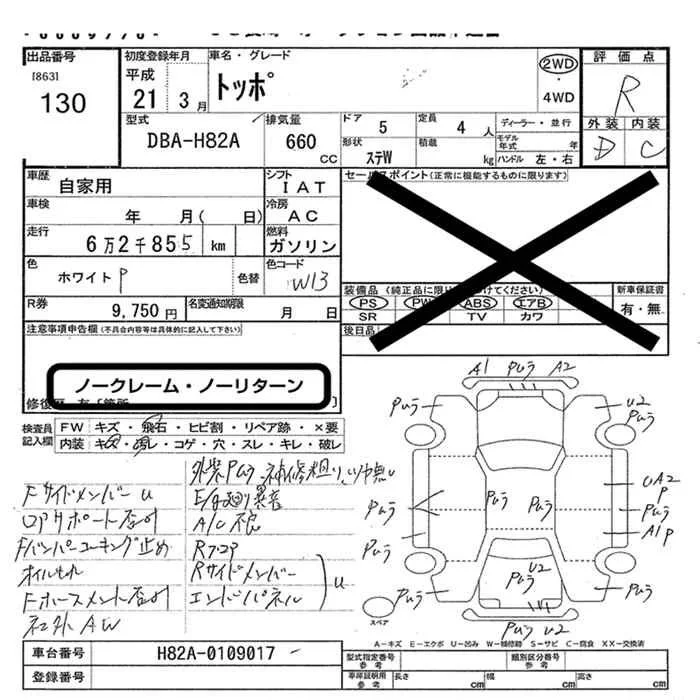 出品番号
[863]
130
初度登録年月
平成
21 3 月
車名・グレード
トッポ
2WD
4WD
評価点
R
外装 内装
D C
型式
DBA-H82A
排気量
660
CC
ドア
5
定員
4 人
形状
ステW
積載
kg
ディーラー・並行
モデル年式 年
ハンドル 左・右
車歴
自家用
シフト
IAT
車検
年 月( 日)
冷房
AC
走行
6万2千855 km
燃料
ガソリン
色
ホワイトP
色替
色コード
W13
R券
9,750円
名変通知期限
月 日
セールスポイント(正常に機能するものに限ります)
装備品
PS PW ABS エアB
SR TV カワ
新車保証書
有・無
後日品
注意事項申告欄(不具合内容等は具体的に記入して下さい)
ノークレーム・ノーリターン
検査員
記入欄
FW キズ・飛石・ヒビ割・リペア跡・×要
内装 キズ・汚レ・コゲ・穴・スレ・キレ・破レ
FサイドメンバーU
Fバンパーコーキング止め
オイルもれ
社外AW
A/C不良
Rフロア
Rサイドメンバー
エンドパネル
U
A1 Puラ A2
Puラ
U2
Puラ
Puラ
Puラ
Puラ
UA2
P
Puラ
A1P
Puラ
Puラ
U2
Puラ
Puラ
Puラ U2
スペア
A-キズ E-エクボ U-凹み W-補修跡 S-サビ C-腐食 XX-交換済
車台番号
H82A-0109017
登録番号
型式指定番号
参考
類別区分番号
参考
車庫証明用
参考
長さ cm
幅 cm
高さ cm